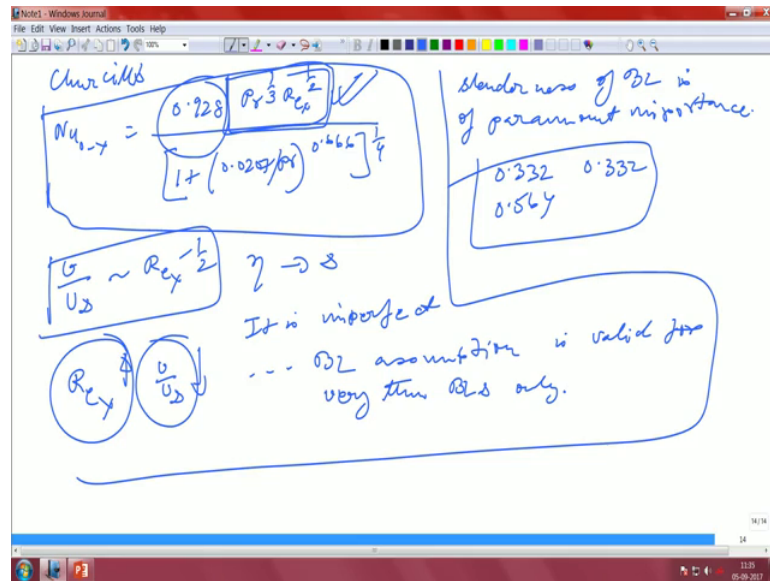 Note1 - Windows Journal
File Edit View Insert Actions Tools Help
100%
Churcills
Nu₀₋ₓ = 0.928 Pr^1/3 Reₓ^1/2
[1 + (0.0207/Pr)^0.666]^1/4
slenderness of BL is
of paramount importance.
0.332 0.332
0.564
~ Reₓ^-1/2 η → s
It is imperfect
Reₓ ↑ ↓ --- BL assumption is valid for
very thin BLs only.
14/14
14
11:35
05-09-2017